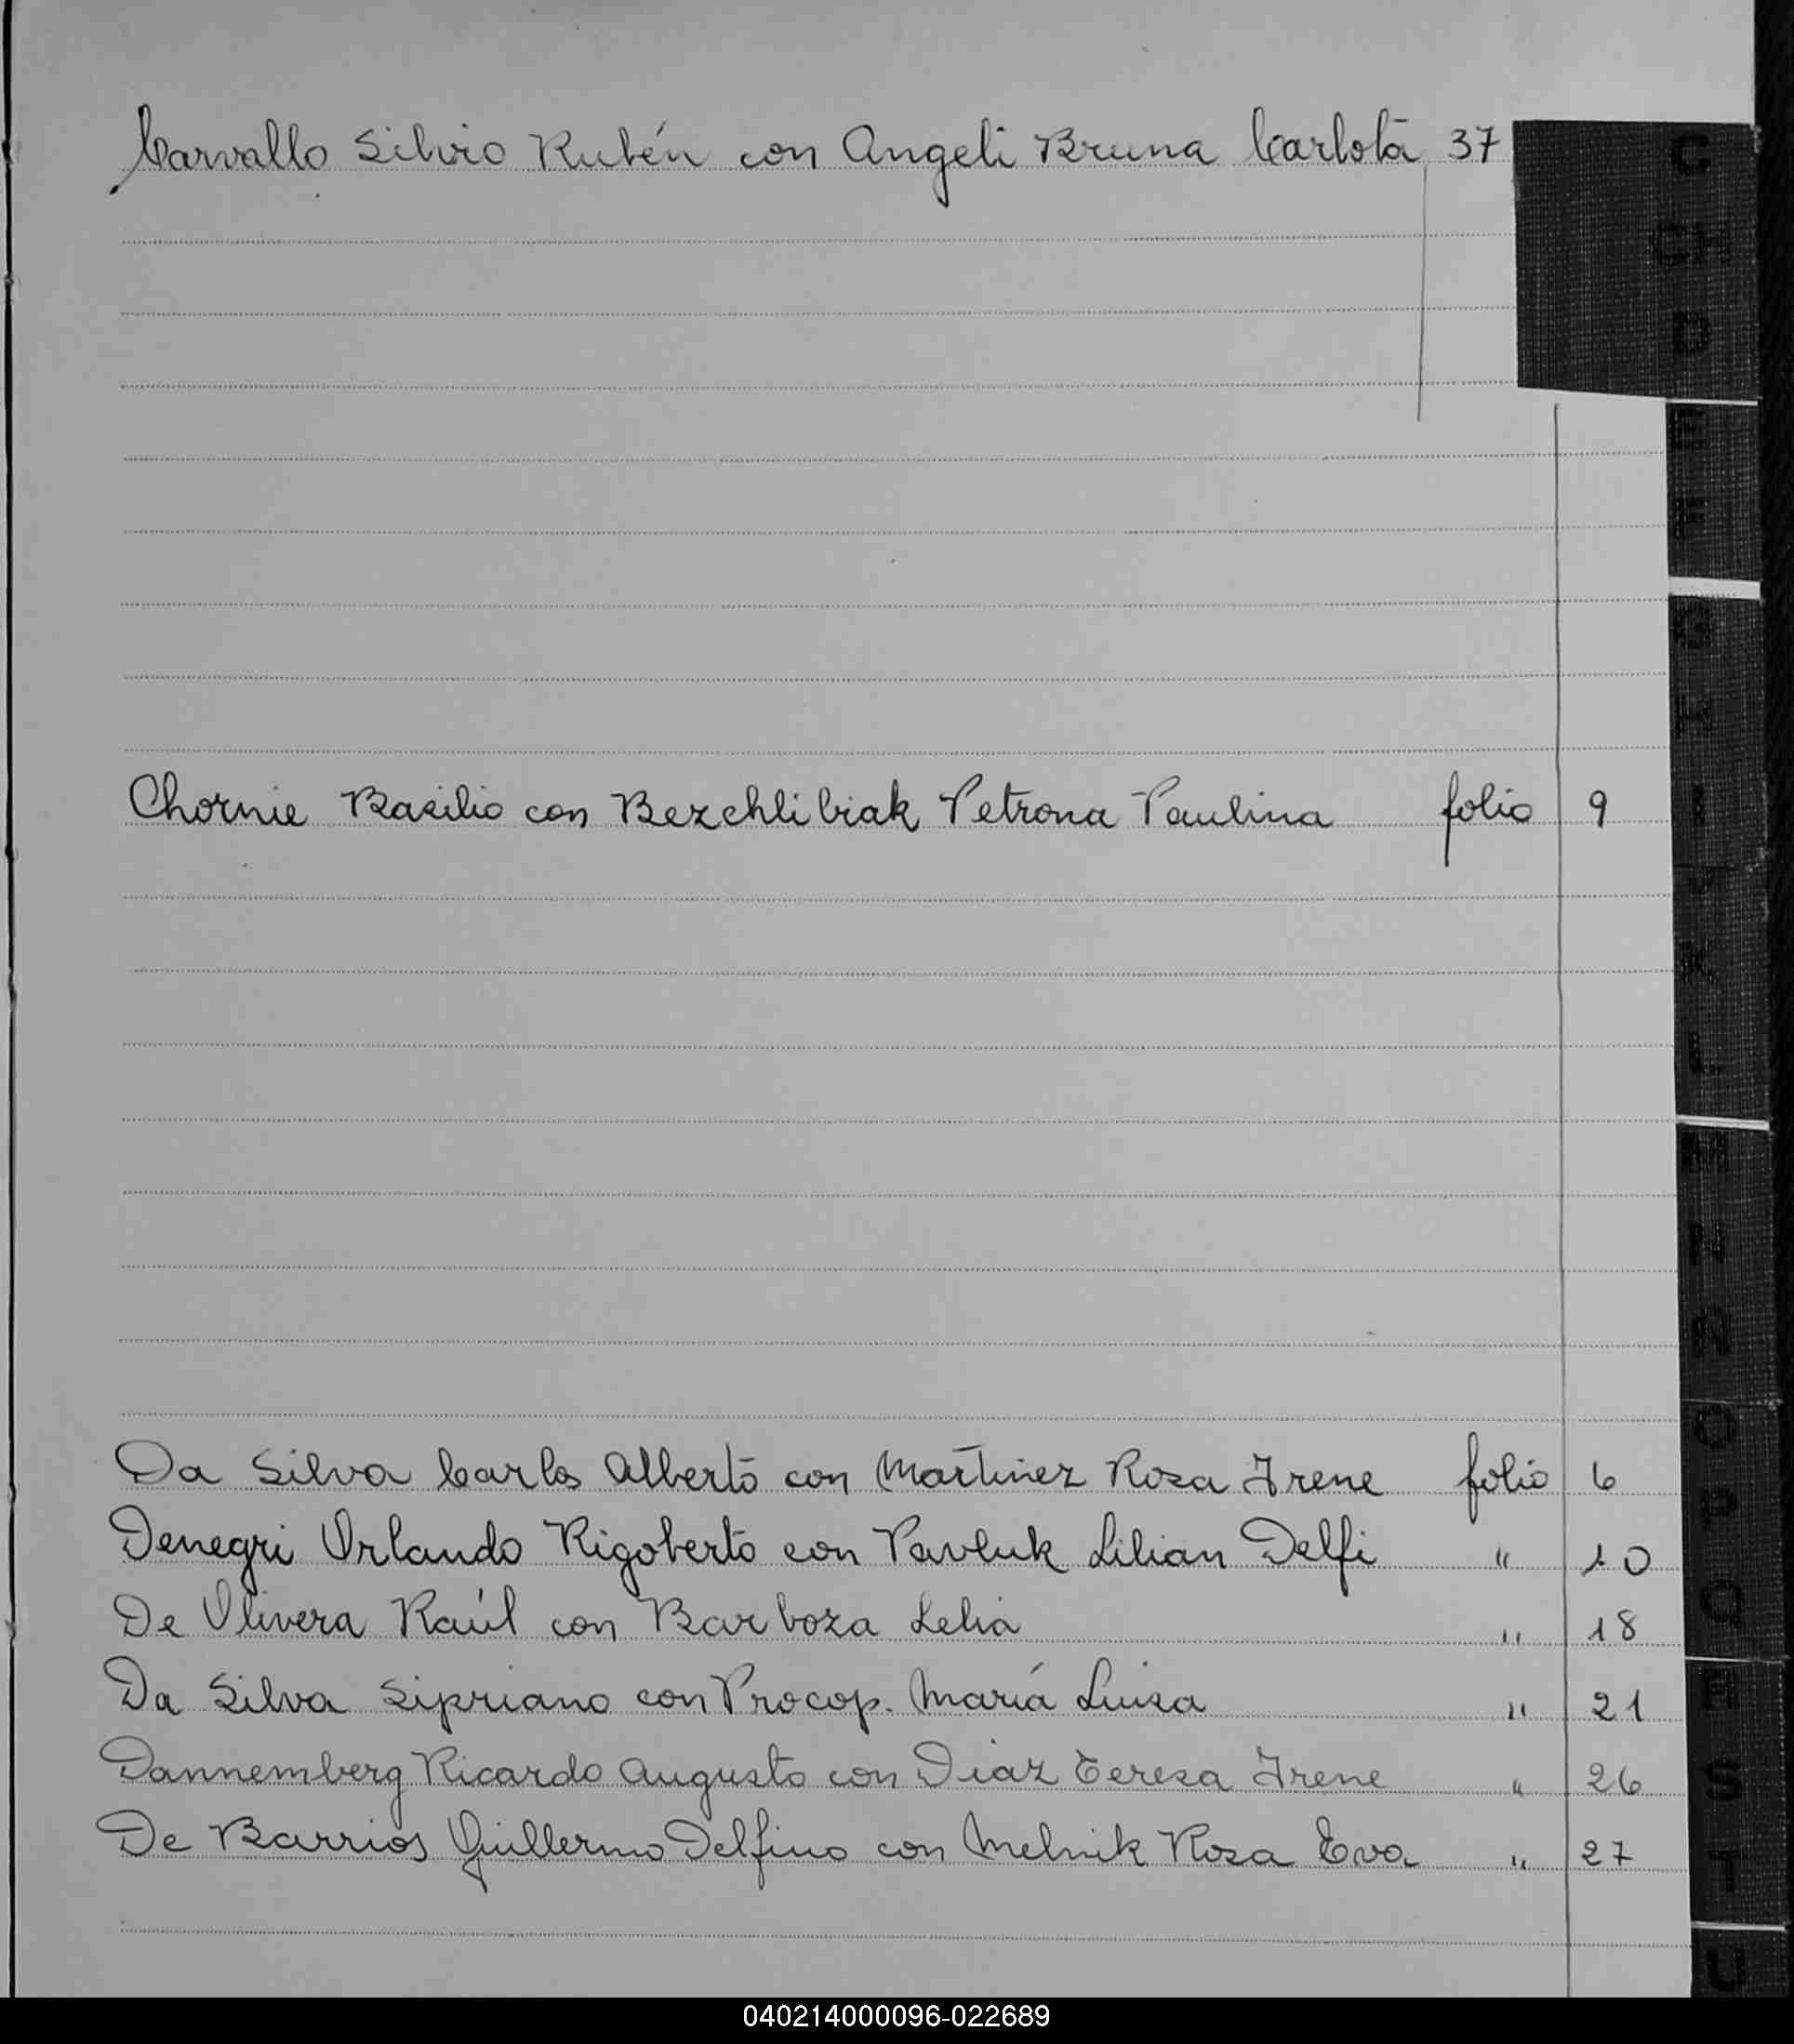 Carvallo Silvio Rubén con Angeli Bruna Carlota 37
C
CH
D
E
F
G
H
I
J
Chornie Basilio con Bezchlibiak Petrona Paulina folio 9
K
L
M
N
Ñ
O
Da Silva Carlos Alberto con Martinez Rosa Irene folio 6
P
Denegri Orlando Rigoberto con Pavluk Lilian Delfi " 10
Q
De Olivera Raúl con Barboza Lelia " 18
R
Da Silva Sipriano con Procop. María Luisa " 21
S
Dannemberg Ricardo Augusto con Diaz Teresa Irene " 26
De Barrios Guillermo Delfino con Melnik Rosa Eva " 27
T
U
040214000096-022689